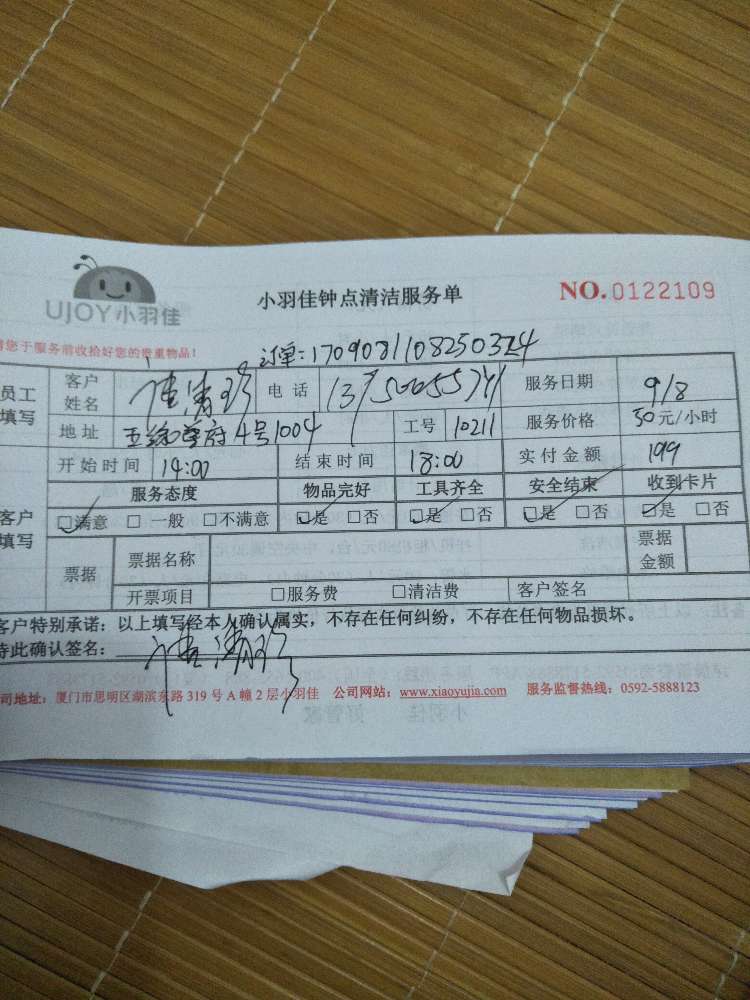 UJOY小羽佳
小羽佳钟点清洁服务单
NO.0122109
请您于服务前收拾好您的贵重物品!
订单:170908110825032
员工填写 客户姓名 电话 服务日期 9/8
地址 4号1004 工号 10211 服务价格 50元/小时
开始时间 14:00 结束时间 18:00 实付金额 199
客户填写 服务态度 物品完好 工具齐全 安全结束 收到卡片
□满意 □一般 □不满意 □是 □否 □是 □否 □是 □否 □是 □否
票据 票据名称 票据金额
开票项目 □服务费 □清洁费 客户签名
客户特别承诺:以上填写经本人确认属实,不存在任何纠纷,不存在任何物品损坏。
特此确认签名:
公司地址:厦门市思明区湖滨东路319号A幢2层小羽佳 公司网站:www.xiaoyujia.com 服务监督热线:0592-5888123